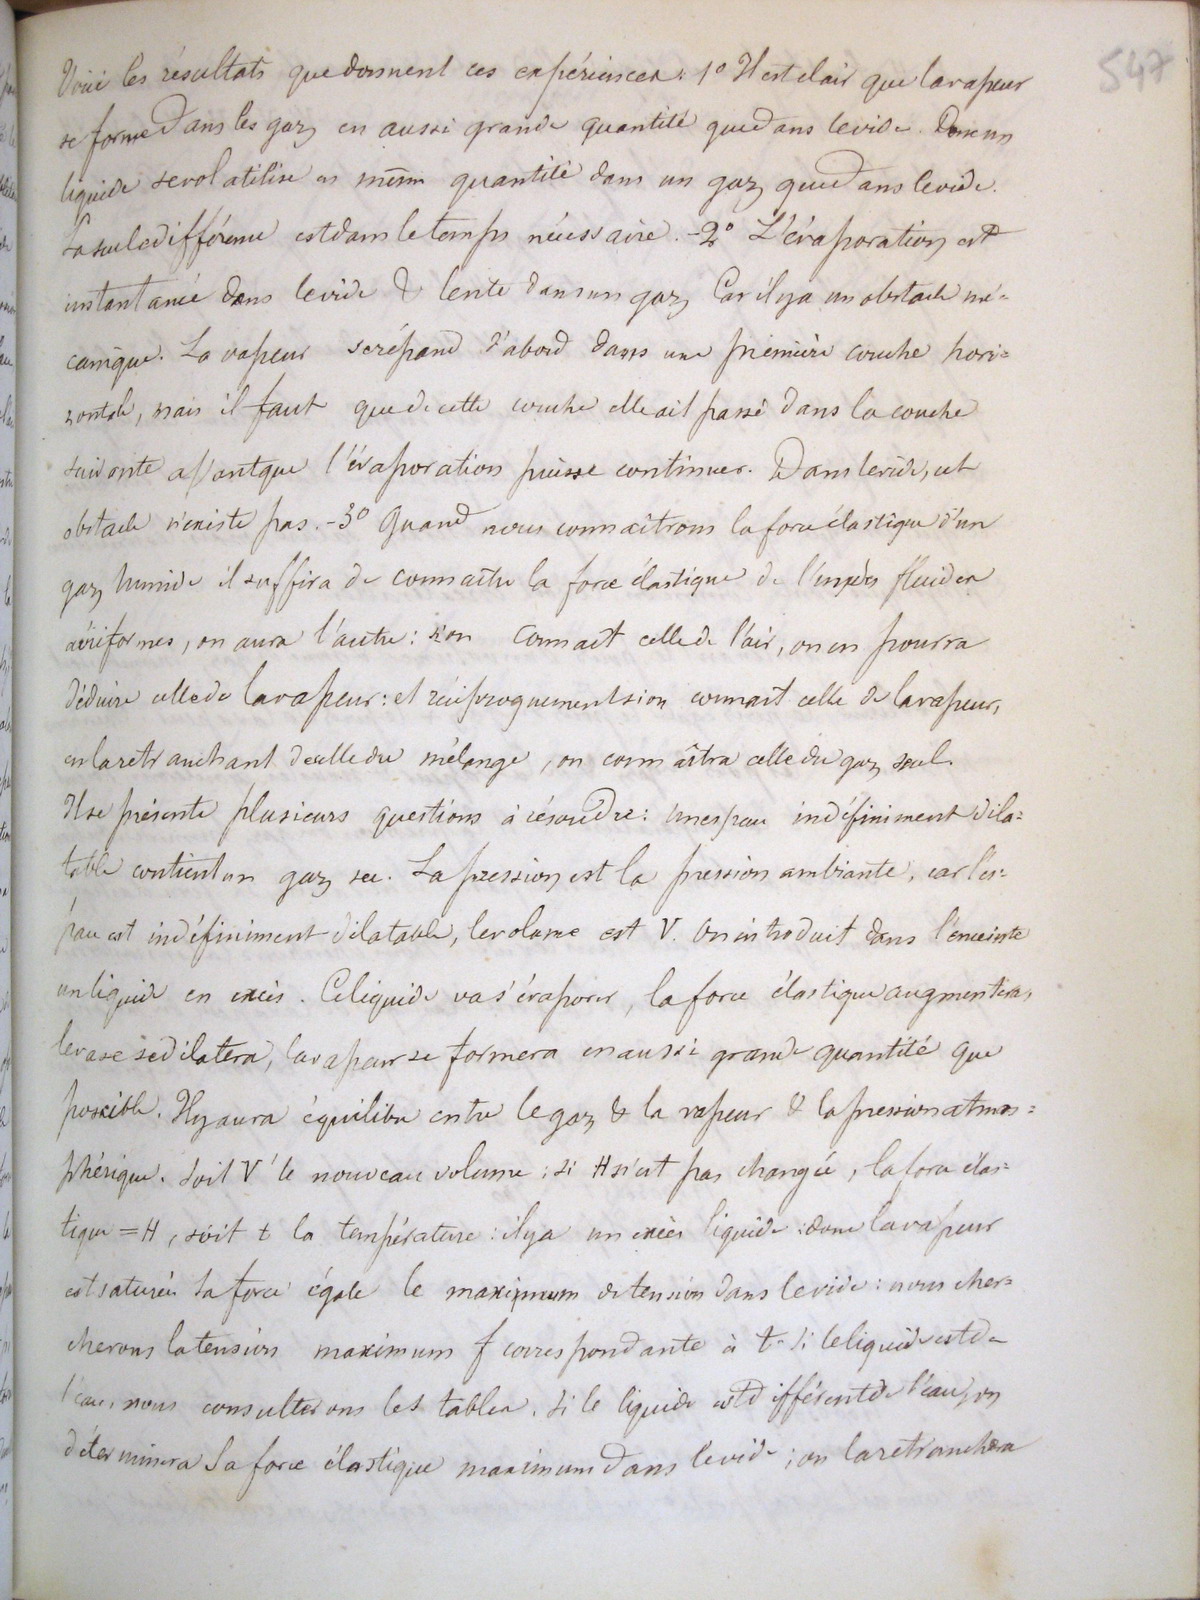 547
Voici les résultats que donnent ces expériences : 1° Il est clair que la vapeur
se forme dans les gaz en aussi grande quantité que dans le vide. Donc un
liquide se volatilise en même quantité dans un gaz que dans le vide.
La seule différence est dans le temps nécessaire. - 2° L'évaporation est
instantanée dans le vide & lente dans un gaz Car il y a un obstacle mé=
canique. La vapeur se répand d'abord dans une première couche hori=
zontale, mais il faut que de cette couche elle ait passé dans la couche
suivante avant que l'évaporation puisse continuer. Dans le vide, cet
obstacle n'existe pas. - 3° Quand nous connaîtrons la force élastique d'un
gaz humide il suffira de connaître la force élastique de l'un des fluides
aériformes, on aura l'autre : si on connait celle de l'air, on en pourra
déduire celle de la vapeur : et réciproquement si on connait celle de la vapeur,
en la retranchant de celle du mélange, on connaîtra celle du gaz seul.
Il se présente plusieurs questions à résoudre : Un espace indéfiniment dila=
table contient un gaz sec. La pression est la pression ambiante, car l'es=
pace est indéfiniment dilatable, le volume est V. On introduit dans l'enceinte
un liquide en excès. Ce liquide va s'évaporer, la force élastique augmentera,
le vase se dilatera, la vapeur se formera en aussi grande quantité que
possible. Il y aura équilibre entre le gaz & la vapeur & la pression atmos=
phérique. Soit V' le nouveau volume : si H n'est pas changée, la force élas=
tique = H, soit t la température : il y a un excès liquide : donc la vapeur
est saturée Sa force égale le maximum de tension dans le vide : nous cher=
cherons la tension maximum f correspondante à t. Si le liquide est de
l'eau, nous consulterons les tables. Si le liquide est différent de l'eau, on
déterminera sa force élastique maximum dans le vide ; on la retranchera